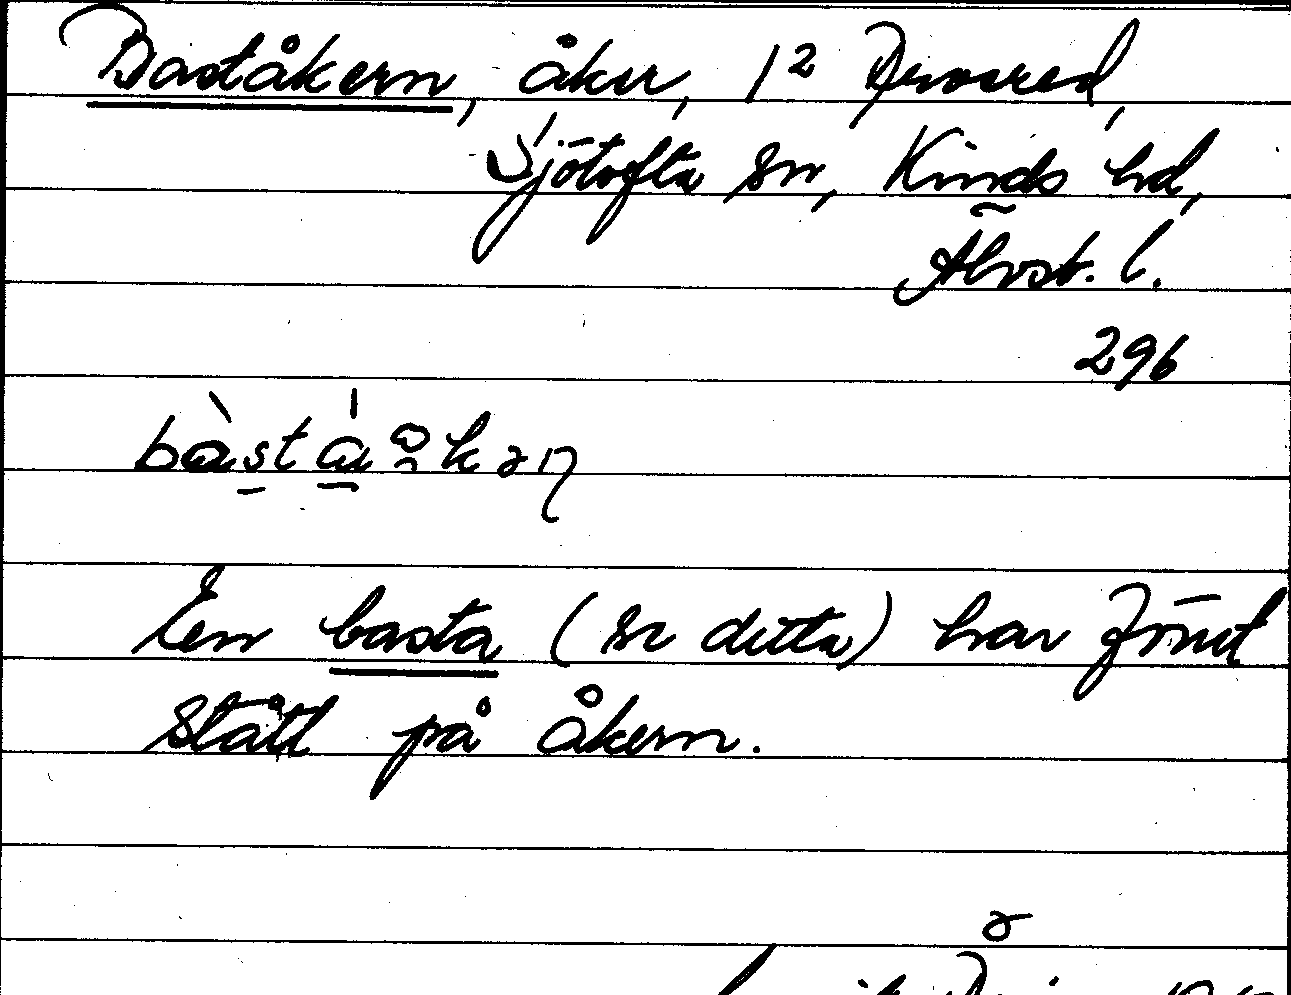 Baståkern, åker, 1² Duvered,
Sjötofta sn, Kinds hd,
Älvsb. l.
296
En basta (se detta) har förut
stått på åkern.